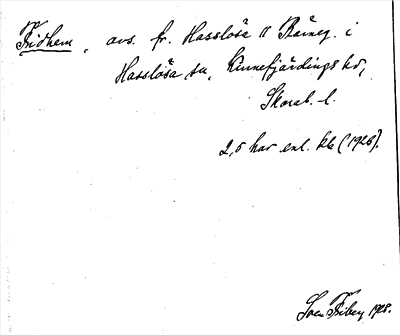 Fridhem, avs. fr. Hasslösa 11 Råneg. i
Hasslösa sn, Kinnefjärdings hd,
Skarab. l.
2,5 har enl. kb (1928).
Sven Friberg 1928.